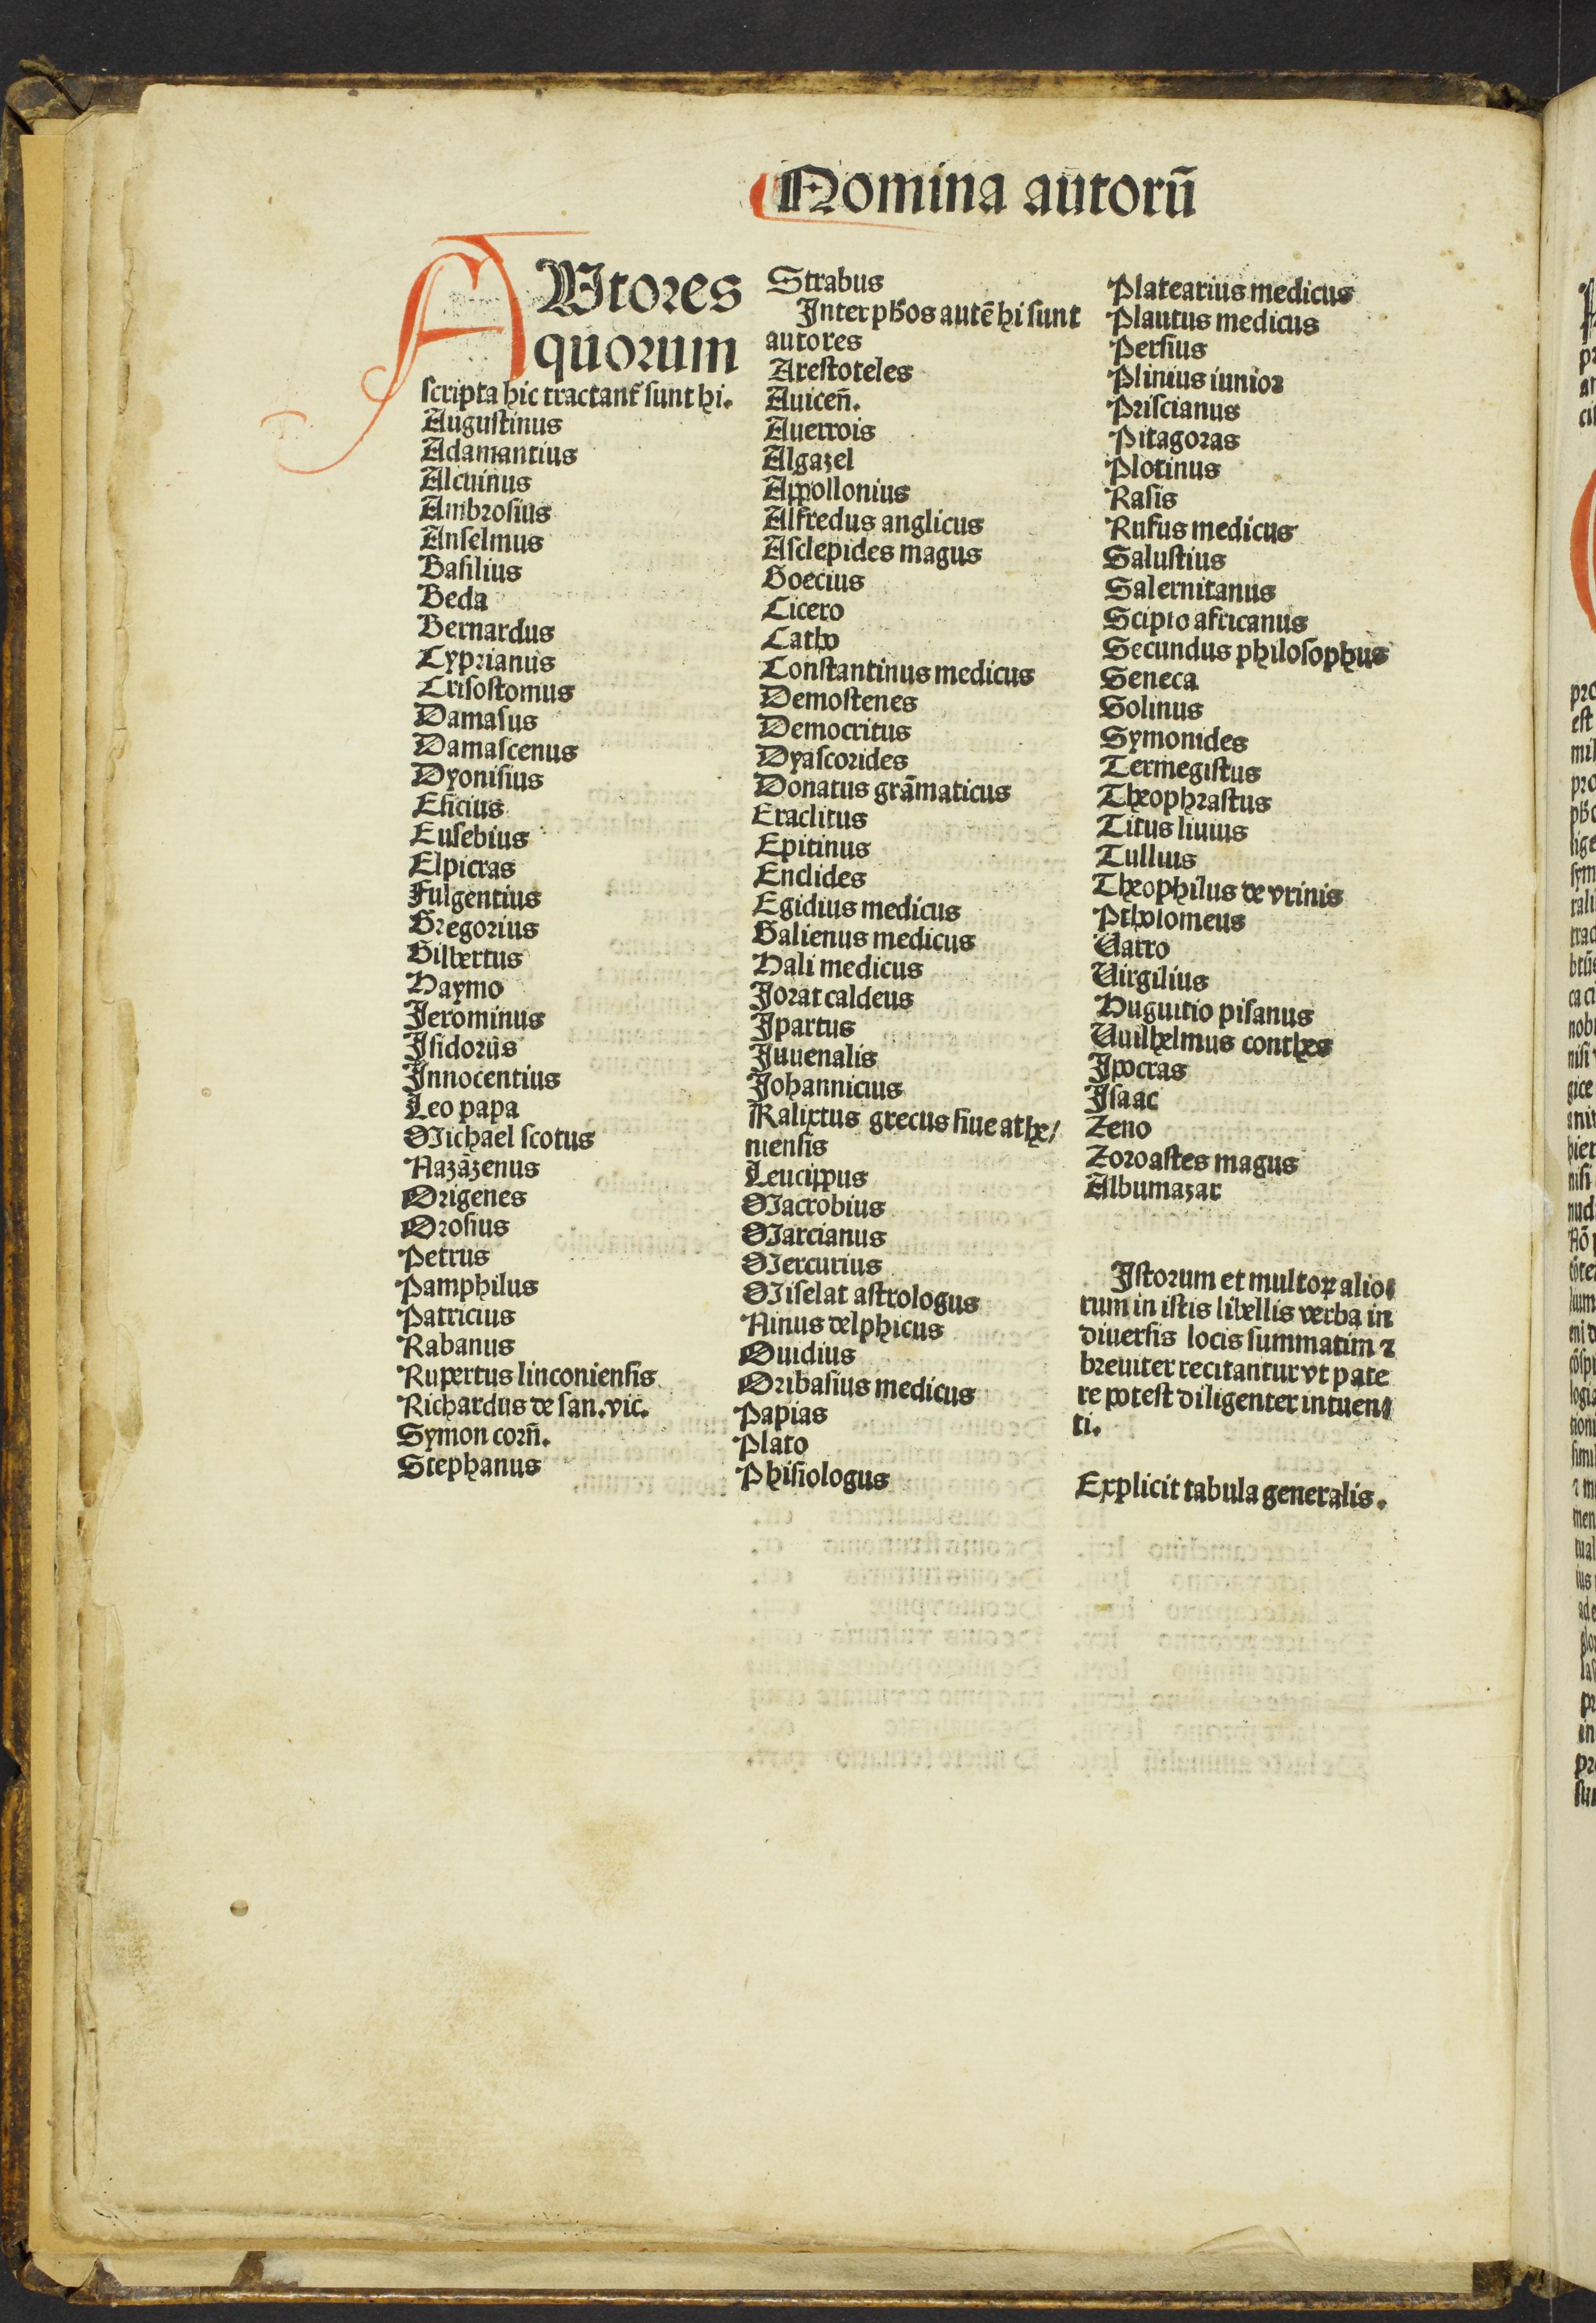 Nomina autorū
AVtores
quorum
scripta hic tractant᷑ sunt hi.
Augustinus
Adamantius
Alcuinus
Ambrosius
Anselmus
Basilius
Beda
Bernardus
Cyprianus
Crisostomus
Damasus
Damascenus
Dyonisius
Eficius
Eusebius
Elpicras
Fulgentius
Gregorius
Gilbertus
Haymo
Jerominus
Jsidorus
Jnnocentius
Leo papa
Michael scotus
Nazāzenus
Origenes
Orosius
Petrus
Pamphilus
Patricius
Rabanus
Rupertus linconiensis
Richardus de san. vic.
Symon corñ.
Stephanus
Strabus
Jnter pħos autē hi sunt
autores
Arestoteles
Auiceñ.
Auerrois
Algazel
Appollonius
Alfredus anglicus
Asclepides magus
Boecius
Cicero
Catho
Constantinus medicus
Demostenes
Democritus
Dyascorides
Donatus grāmaticus
Eraclitus
Epitinus
Enclides
Egidius medicus
Galienus medicus
Hali medicus
Jorat caldeus
Jpartus
Juuenalis
Johannicius
Kalixtus grecus siue athe/
niensis
Leucippus
Macrobius
Marcianus
Mercurius
Miselat astrologus
Ninus delphicus
Ouidius
Oribasius medicus
Papias
Plato
Phisiologus
Platearius medicus
Plautus medicus
Persius
Plinius iunior
Priscianus
Pitagoras
Plotinus
Rasis
Rufus medicus
Salustius
Salernitanus
Scipio africanus
Secundus philosophus
Seneca
Solinus
Symonides
Termegistus
Theophrastus
Titus liuius
Tullius
Theophilus de vrinis
Ptholomeus
Uarro
Uirgilius
Huguitio pisanus
Uuilhelmus conthes
Jpocras
Jsaac
Zeno
Zoroastes magus
Albumazar
Jstorum et multoꝝ alio/
rum in istis libellis verba in
diuersis locis summatim ⁊
breuiter recitantur vt pate
re potest diligenter intuen/
ti.
Explicit tabula generalis.